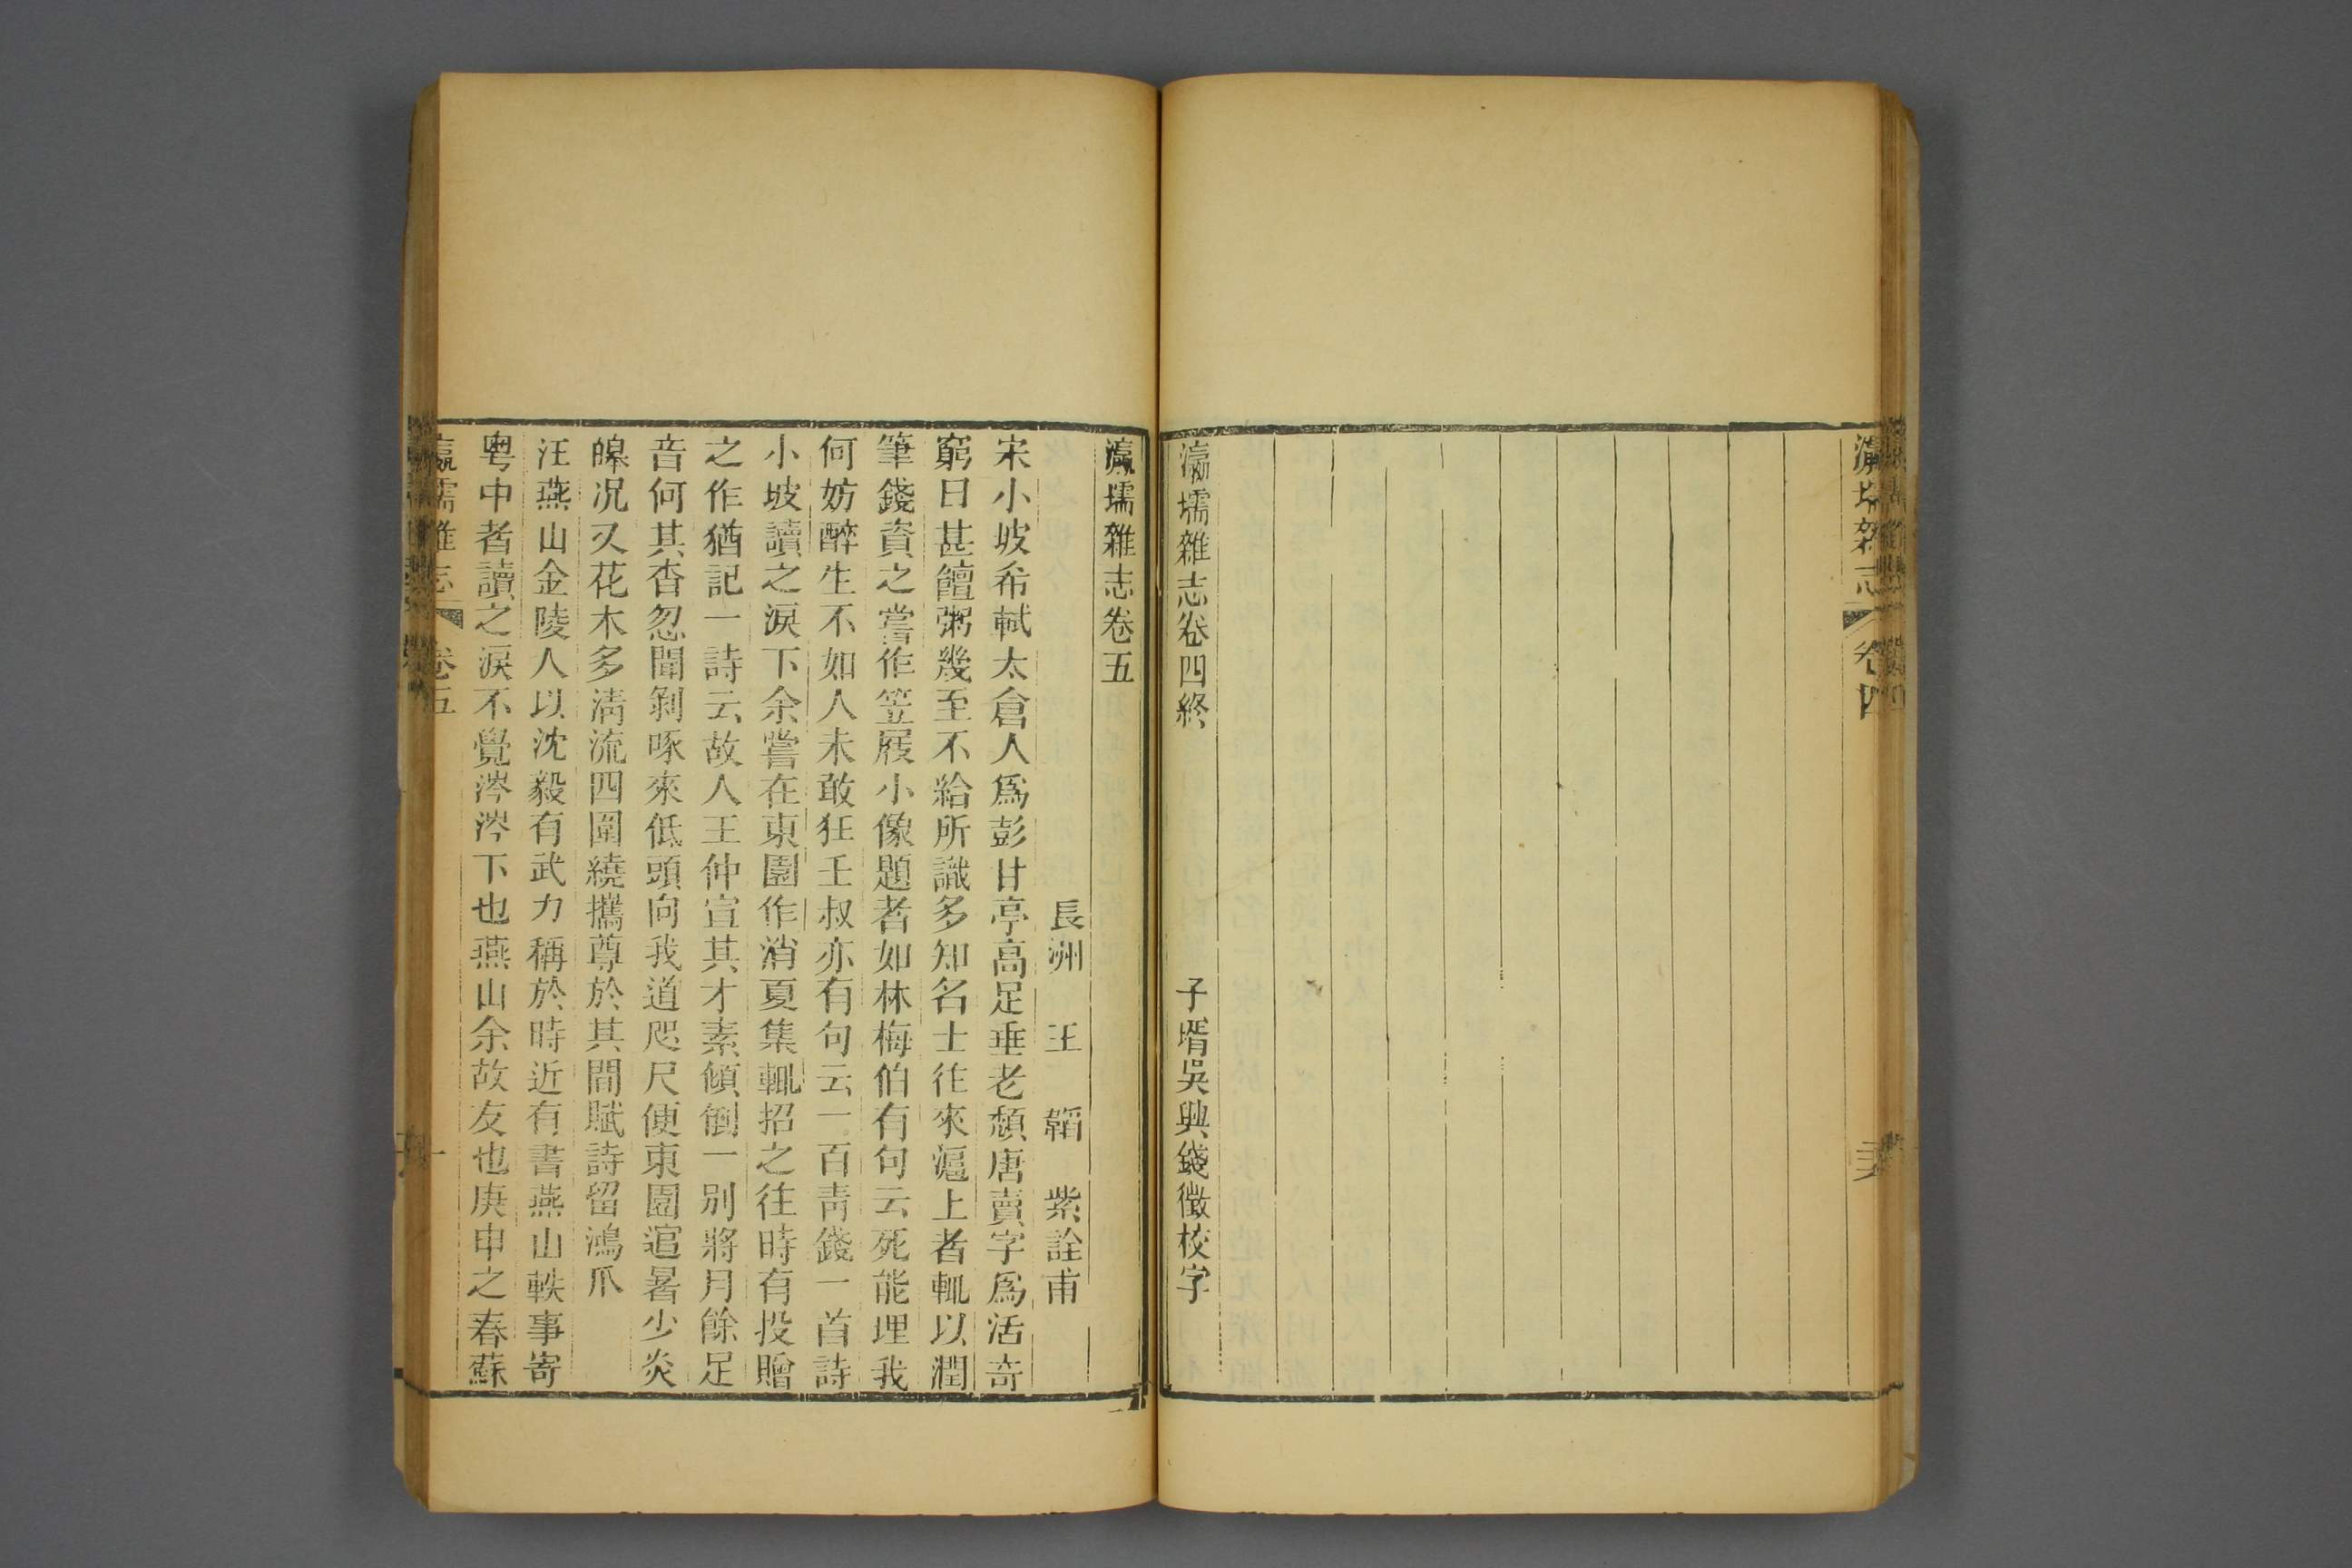 瀛壖雜志
卷四
瀛壖雜志卷四終
子壻吳興錢徵校字
瀛壖雜志卷五
長洲 王 韜 紫詮甫
宋小坡希軾太倉人爲彭甘亭高足垂老頹唐賣字爲活奇
窮日甚饘粥幾至不給所識多知名士往來滬上者輒以潤
筆錢資之嘗作笠屐小像題者如林梅伯有句云死能埋我
何妨醉生不如人未敢狂壬叔亦有句云一百靑錢一首詩
小坡讀之淚下余嘗在東園作消夏集輒招之往時有投贈
之作猶記一詩云故人王仲宣其才素傾倒一別將月餘足
音何其杳忽聞剝啄來低頭向我道咫尺便東園逭暑少炎
皞況又花木多淸流四圍繞攜尊於其間賦詩留鴻爪
汪燕山金陵人以沈毅有武力稱於時近有書燕山軼事寄
粵中者讀之淚不覺涔涔下也燕山余故友也庚申之春蘇
瀛壖雜志
卷五
一